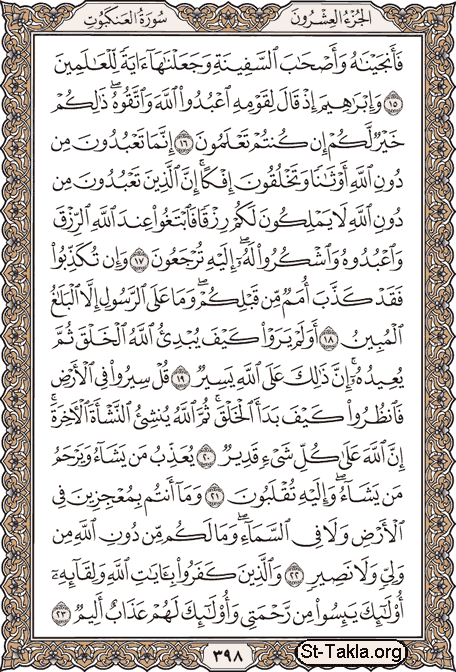 الجُزْءُ العِشْرُونَ
سُورَةُ العَنكَبُوتِ
فَأَنجَيْنَٰهُ وَأَصْحَٰبَ ٱلسَّفِينَةِ وَجَعَلْنَٰهَآ ءَايَةً لِّلْعَٰلَمِينَ
١٥ وَإِبْرَٰهِيمَ إِذْ قَالَ لِقَوْمِهِ ٱعْبُدُوا۟ ٱللَّهَ وَٱتَّقُوهُ ۖ ذَٰلِكُمْ
خَيْرٌ لَّكُمْ إِن كُنتُمْ تَعْلَمُونَ ١٦ إِنَّمَا تَعْبُدُونَ مِن
دُونِ ٱللَّهِ أَوْثَٰنًا وَتَخْلُقُونَ إِفْكًا ۚ إِنَّ ٱلَّذِينَ تَعْبُدُونَ مِن
دُونِ ٱللَّهِ لَا يَمْلِكُونَ لَكُمْ رِزْقًا فَٱبْتَغُوا۟ عِندَ ٱللَّهِ ٱلرِّزْقَ
وَٱعْبُدُوهُ وَٱشْكُرُوا۟ لَهُۥٓ ۖ إِلَيْهِ تُرْجَعُونَ ١٧ وَإِن تُكَذِّبُوا۟
فَقَدْ كَذَّبَ أُمَمٌ مِّن قَبْلِكُمْ ۖ وَمَا عَلَى ٱلرَّسُولِ إِلَّا ٱلْبَلَٰغُ
ٱلْمُبِينُ ١٨ أَوَلَمْ يَرَوْا۟ كَيْفَ يُبْدِئُ ٱللَّهُ ٱلْخَلْقَ ثُمَّ
يُعِيدُهُۥٓ ۚ إِنَّ ذَٰلِكَ عَلَى ٱللَّهِ يَسِيرٌ ١٩ قُلْ سِيرُوا۟ فِى ٱلْأَرْضِ
فَٱنظُرُوا۟ كَيْفَ بَدَأَ ٱلْخَلْقَ ۚ ثُمَّ ٱللَّهُ يُنشِئُ ٱلنَّشْأَةَ ٱلْءَاخِرَةَ ۚ
إِنَّ ٱللَّهَ عَلَىٰ كُلِّ شَىْءٍ قَدِيرٌ ٢٠ يُعَذِّبُ مَن يَشَآءُ وَيَرْحَمُ
مَن يَشَآءُ ۖ وَإِلَيْهِ تُقْلَبُونَ ٢١ وَمَآ أَنتُم بِمُعْجِزِينَ فِى
ٱلْأَرْضِ وَلَا فِى ٱلسَّمَآءِ ۖ وَمَا لَكُم مِّن دُونِ ٱللَّهِ مِن
وَلِىٍّ وَلَا نَصِيرٍ ٢٢ وَٱلَّذِينَ كَفَرُوا۟ بِـَٔايَٰتِ ٱللَّهِ وَلِقَآئِهِۦٓ
أُو۟لَٰٓئِكَ يَئِسُوا۟ مِن رَّحْمَتِى وَأُو۟لَٰٓئِكَ لَهُمْ عَذَابٌ أَلِيمٌ ٢٣
٣٩٨
St-Takla.org